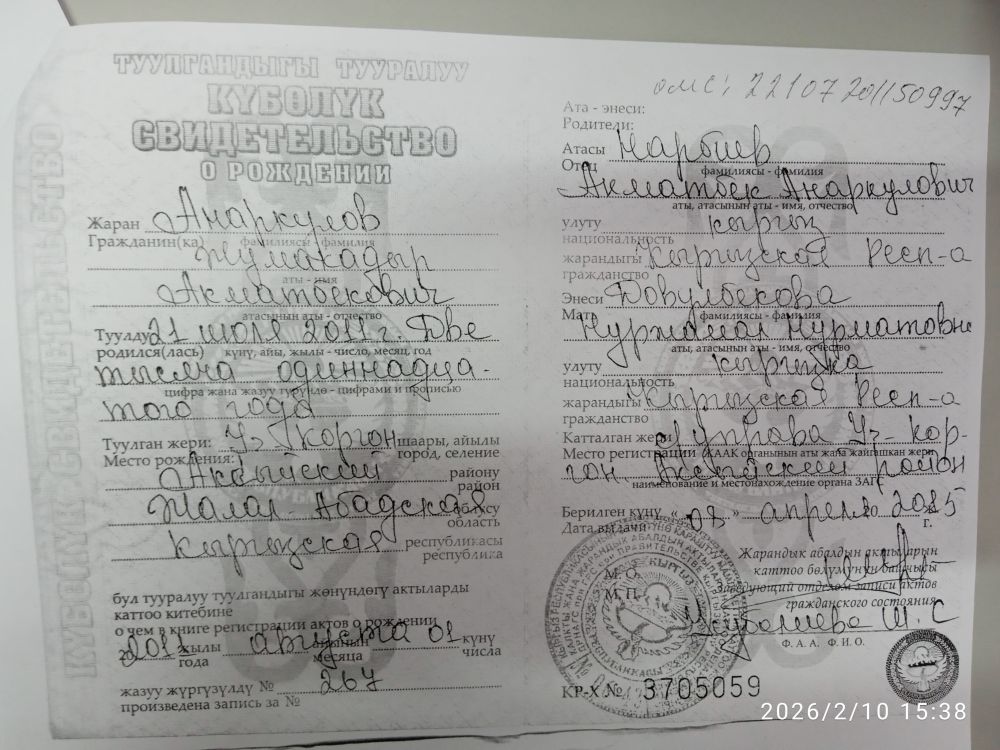 ТУУЛГАНДЫГЫ ТУУРАЛУУ
КҮБӨЛҮК
СВИДЕТЕЛЬСТВО
О РОЖДЕНИИ
Жаран Анаркулов
Гражданин(ка) фамилиясы - фамилия
Жумакадыр
аты - имя
Акматбекович
атасынын аты - отчество
Туулду 21 июля 2011 г. Две
родился(лась) күнү, айы, жылы - число, месяц, год
тысяча одиннадца-
цифра жана жазуу түрүндө - цифрами и прописью
того года
Туулган жери: Уч-Коргон шаары, айылы
Место рождения: город, селение
Аксыйский району
район
Жалал-Абадская облусу
область
Кыргызская республикасы
республика
бул тууралуу туулгандыгы жөнүндөгү актыларды
каттоо китебине
о чем в книге регистрации актов о рождении
жылы августа 01 күнү
года месяца числа
жазуу жүргүзүлдү № 267
произведена запись за №
омс: 221072011150997
Ата - энеси:
Родители:
Атасы Нарбиев
Отец фамилиясы - фамилия
Акматбек Анаркулович
аты, атасынын аты - имя, отчество
улуту кыргыз
национальность
жарандыгы Кыргызская Респ-а
гражданство
Энеси Довулбекова
Мать фамилиясы - фамилия
Нуржамал Нурматовна
аты, атасынын аты - имя, отчество
улуту кыргызка
национальность
жарандыгы Кыргызская Респ-а
гражданство
Катталган жери Уч-Кор-
Место регистрации ЖААК органынын аты жана жайгашкан жери
гон, Аксыйский район
наименование и местонахождение органа ЗАГС
Берилген күнү « » апреля 2015
Дата выдачи г.
Жарандык абалдын актыларын
каттоо бөлүмүнүн башчысы
М. О. Заведующий отделом записи актов
М. П. гражданского состояния
Ф. А. А. Ф. И. О.
КР-X № 3705059
КҮБӨЛҮК СВИДЕТЕЛЬСТВО
2026/2/10 15:38